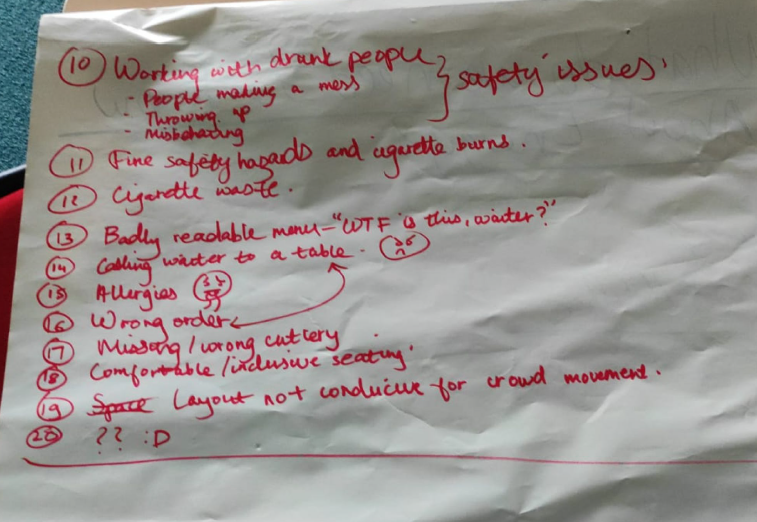 10 Working with drunk people } safety issues.
- People making a mess
- Throwing up
- Misbehaving
11 Fine safety hazards and cigarette burns.
12 Cigarette waste.
13 Badly readable menu - "WTF is this, waiter?"
14 Calling waiter to a table.
15 Allergies
16 Wrong order
17 Missing / wrong cutlery
18 Comfortable / inclusive seating.
19 Space Layout not conducive for crowd movement.
20 ?? :D